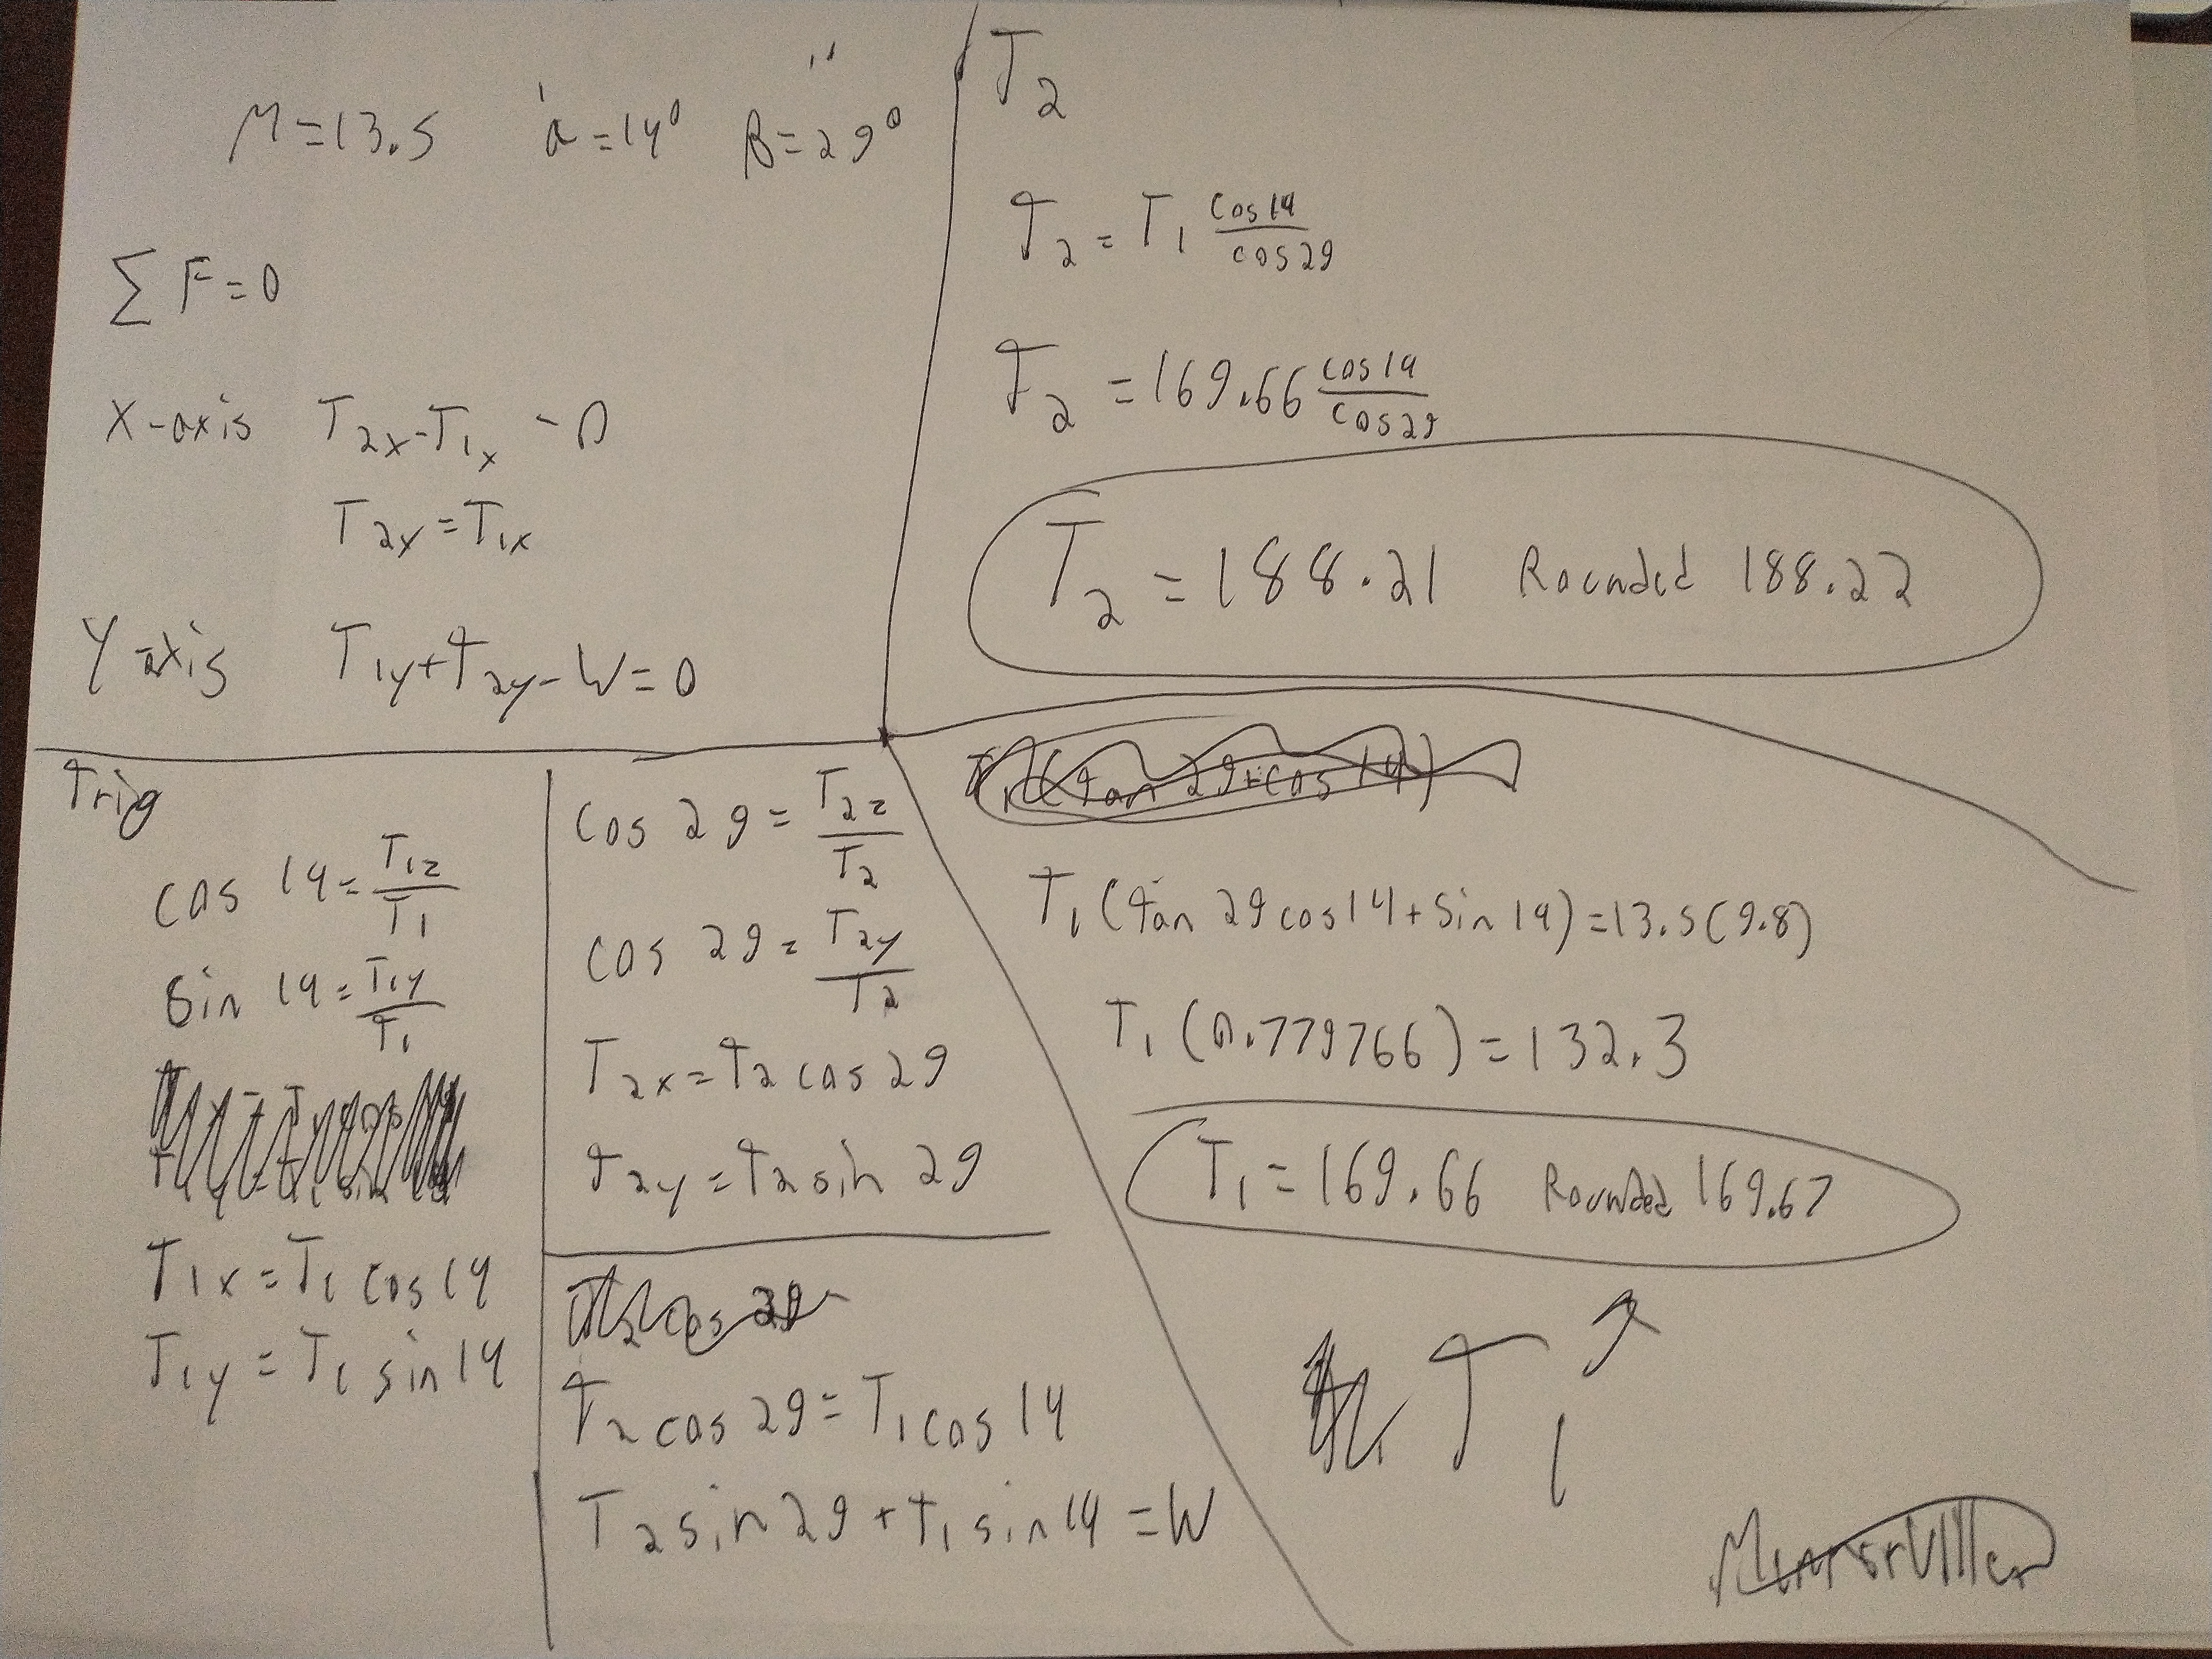 M=13.5 a=14° B=29°
∑ F=0
X-axis T2x-T1x -0
T2x=T1x
Y axis T1y+T2y-W=0
T2
T2=T1 cos14/cos29
T2=169.66 cos14/cos29
T2=188.21 Rounded 188.22
Trig
cos 14=T1z/T1
Sin 14=T1y/T1
T1x=T1 cos14
T1y=T1 sin14
cos 29=T2z/T2
cos 29=T2y/T2
T2x=T2 cos 29
T2y=T2 sin 29
T2 cos 29=T1 cos 14
T2 sin29+T1 sin14=W
T1(tan 29+cos 14)
T1(tan 29cos14+sin 14)=13.5(9.8)
T1(0.779766)=132.3
T1=169.66 Rounded 169.67
T1